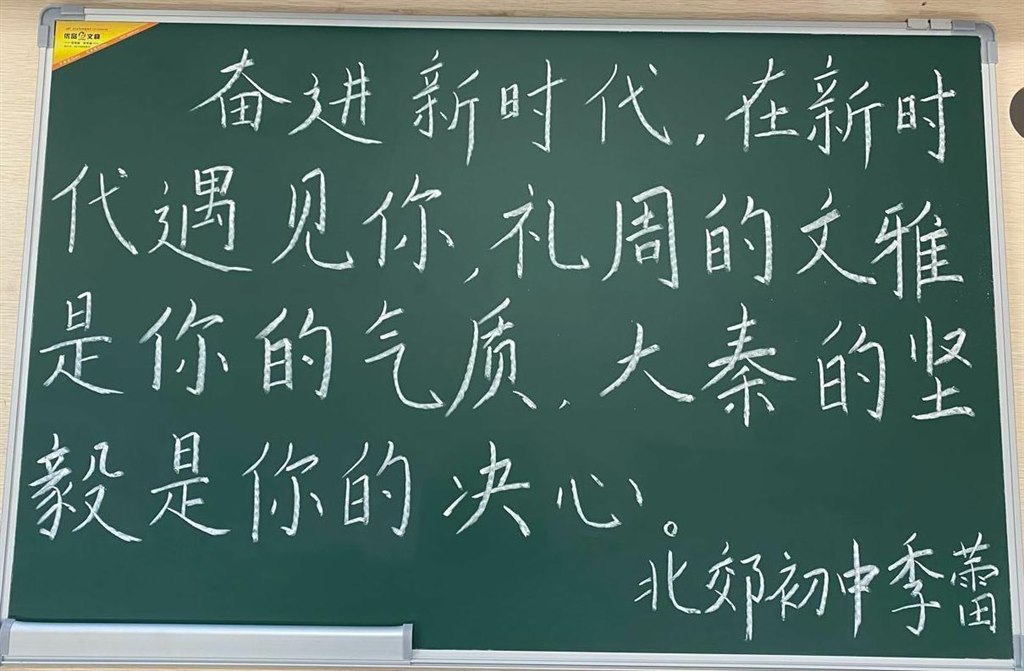 优品文具
奋进新时代,在新时
代遇见你,礼周的文雅
是你的气质,大秦的坚
毅是你的决心。
北郊初中季蕾